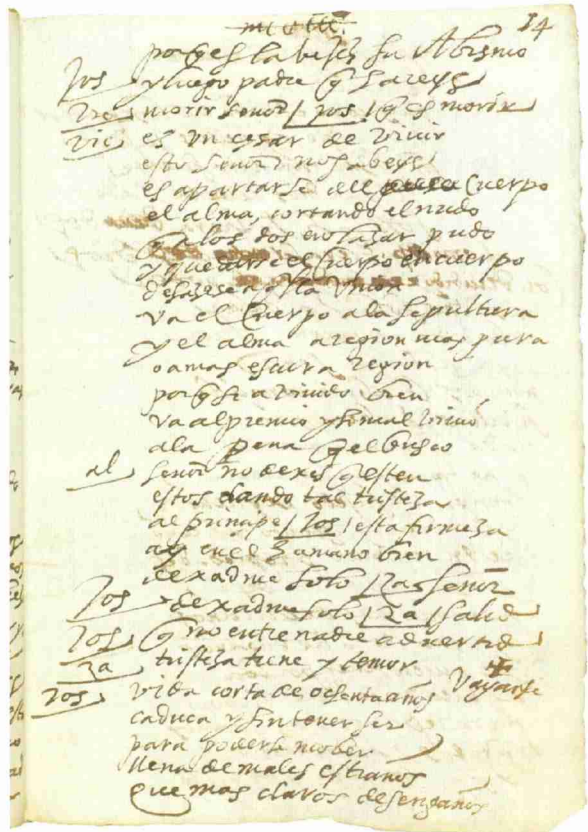 14
porq̃ es la vejez su Abismo
Jos y luego padre q̃ hareys
Vie morir señor / Jos / q̃ es morir
vie es un cesar de vivir
esto señor no sabeys
es apartarse del cuerpo
el alma, cortando el nudo
q̃ a los dos enlazar pudo
y quedarse el cuerpo en cuerpo
desasese la union
va el cuerpo a la sepultura
y el alma a region mas pura
o a mas escura region
porq̃ si a vivido bien
va al premio y si mal vivio
a la pena q̃ el busco
al señor no dexes q̃ esten
estos dando tal tristeza
al principe / Jos / esta firmeza
ay en el humano bien
dexadme solo / Za señor
Jos dexadme solo / Za / salid
Jos q̃ no entre nadie advertid
Za tristeza tiene y temor Vayanse
Jos vida corta de ochenta años
caduca y sin tener ser
para poderte mober
llena de males estraños
que mas claros desengaños